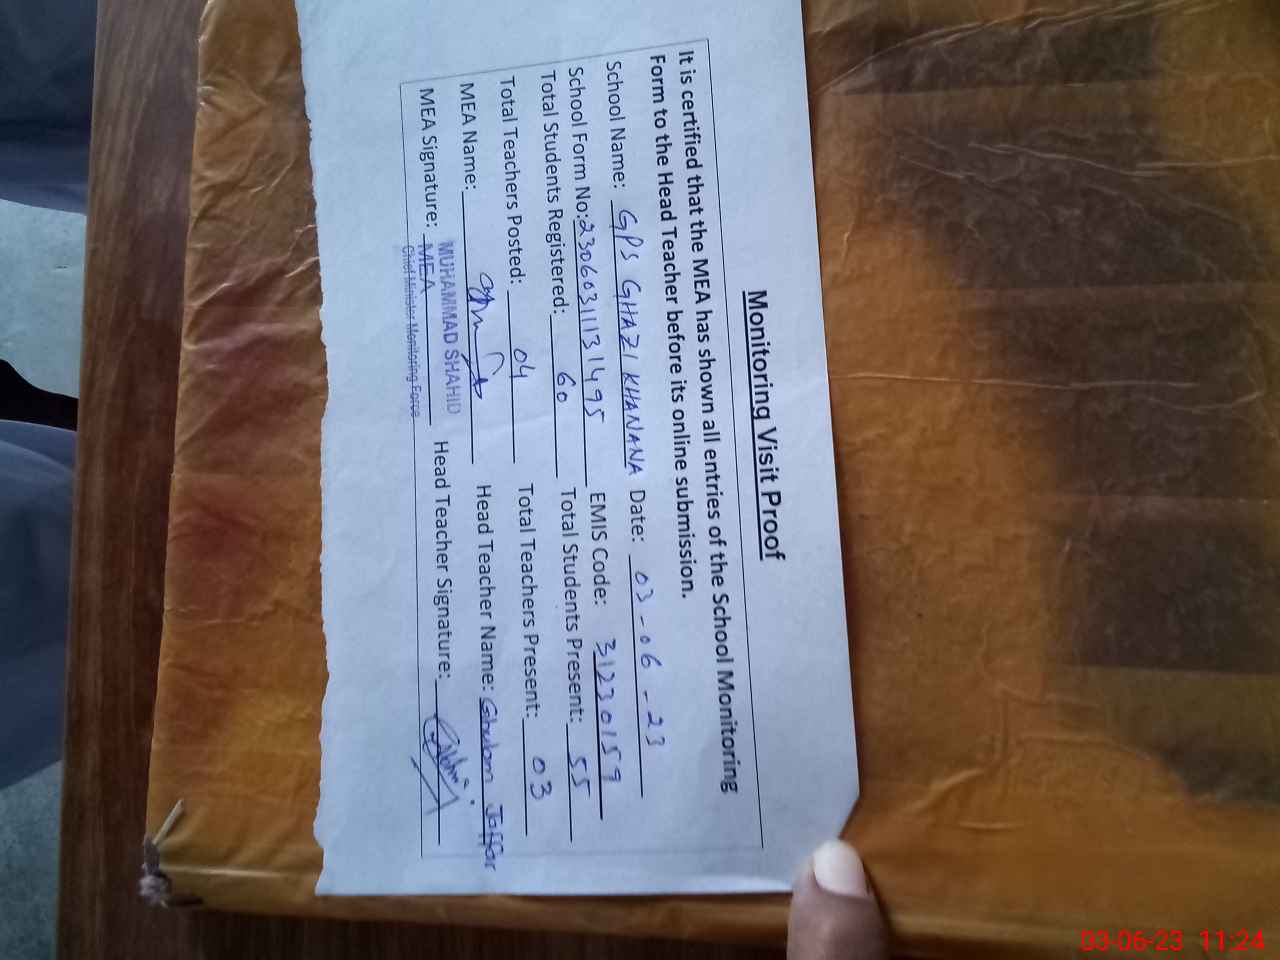 Monitoring Visit Proof
It is certified that the MEA has shown all entries of the School Monitoring
Form to the Head Teacher before its online submission.
School Name: GPS GHAZI KHANANA Date: 03-06-23
School Form No: 23060311131495 EMIS Code: 31230159
Total Students Registered: 60 Total Students Present: 55
Total Teachers Posted: 04 Total Teachers Present: 03
MEA Name: Head Teacher Name: Ghulam Jaffar
MUHAMMAD SHAHID
MEA Signature: MEA Head Teacher Signature:
Chief Minister Monitoring Force
03-06-23 11:24